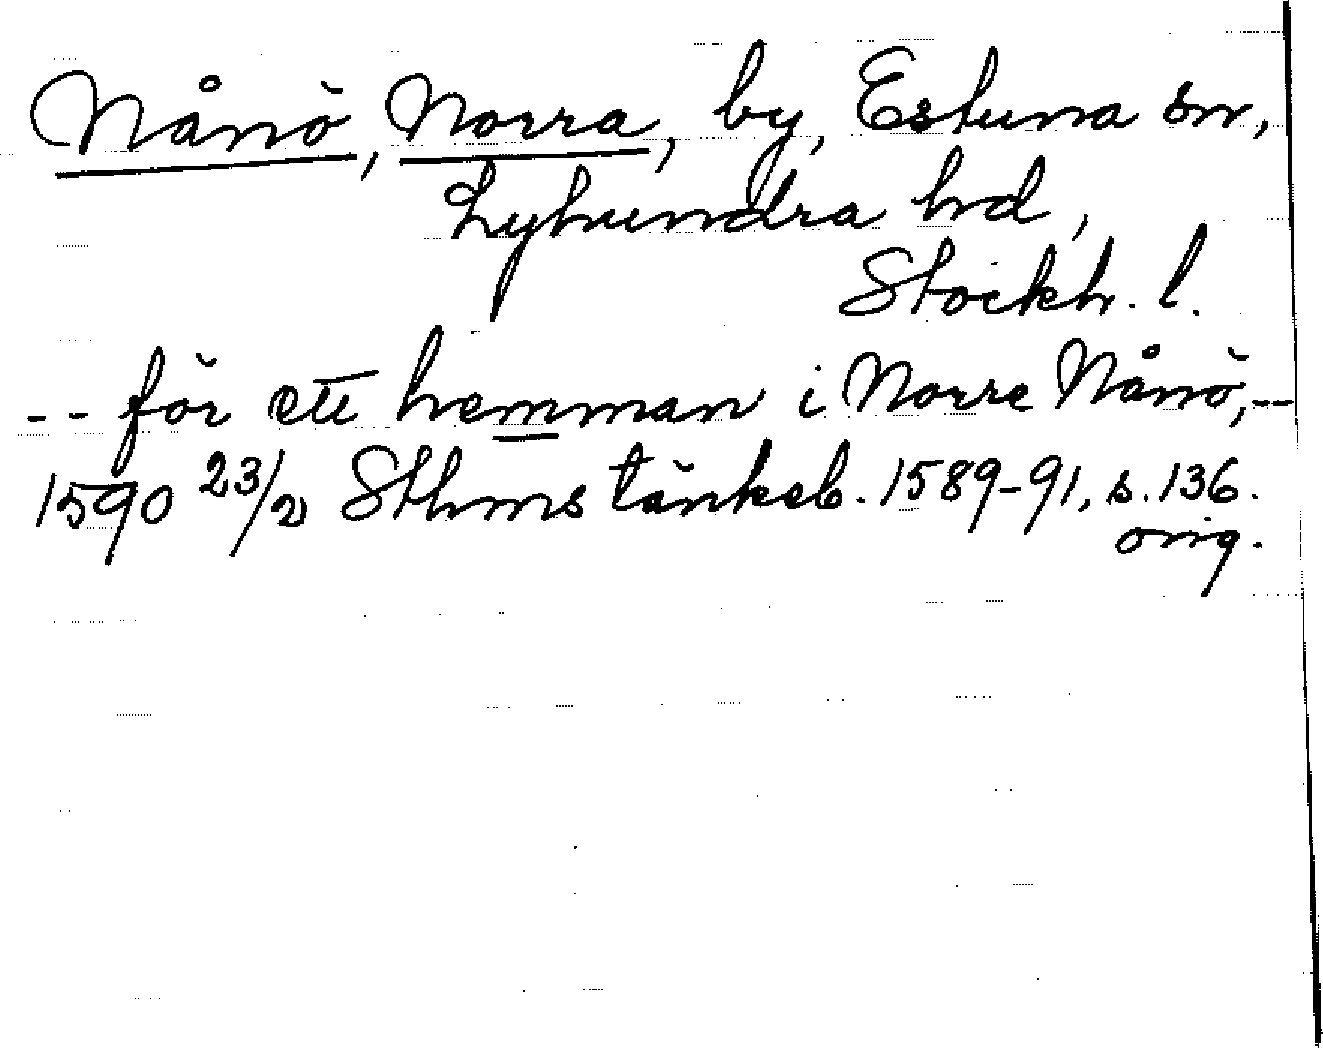 Nånö, Norra, by, Estuna sn,
Lyhundra hd,
Stockh. l.
-- för ett hemman i Norre Nånö, --
1590 23/2 Sthms tänkeb. 1589-91, s. 136.
orig.